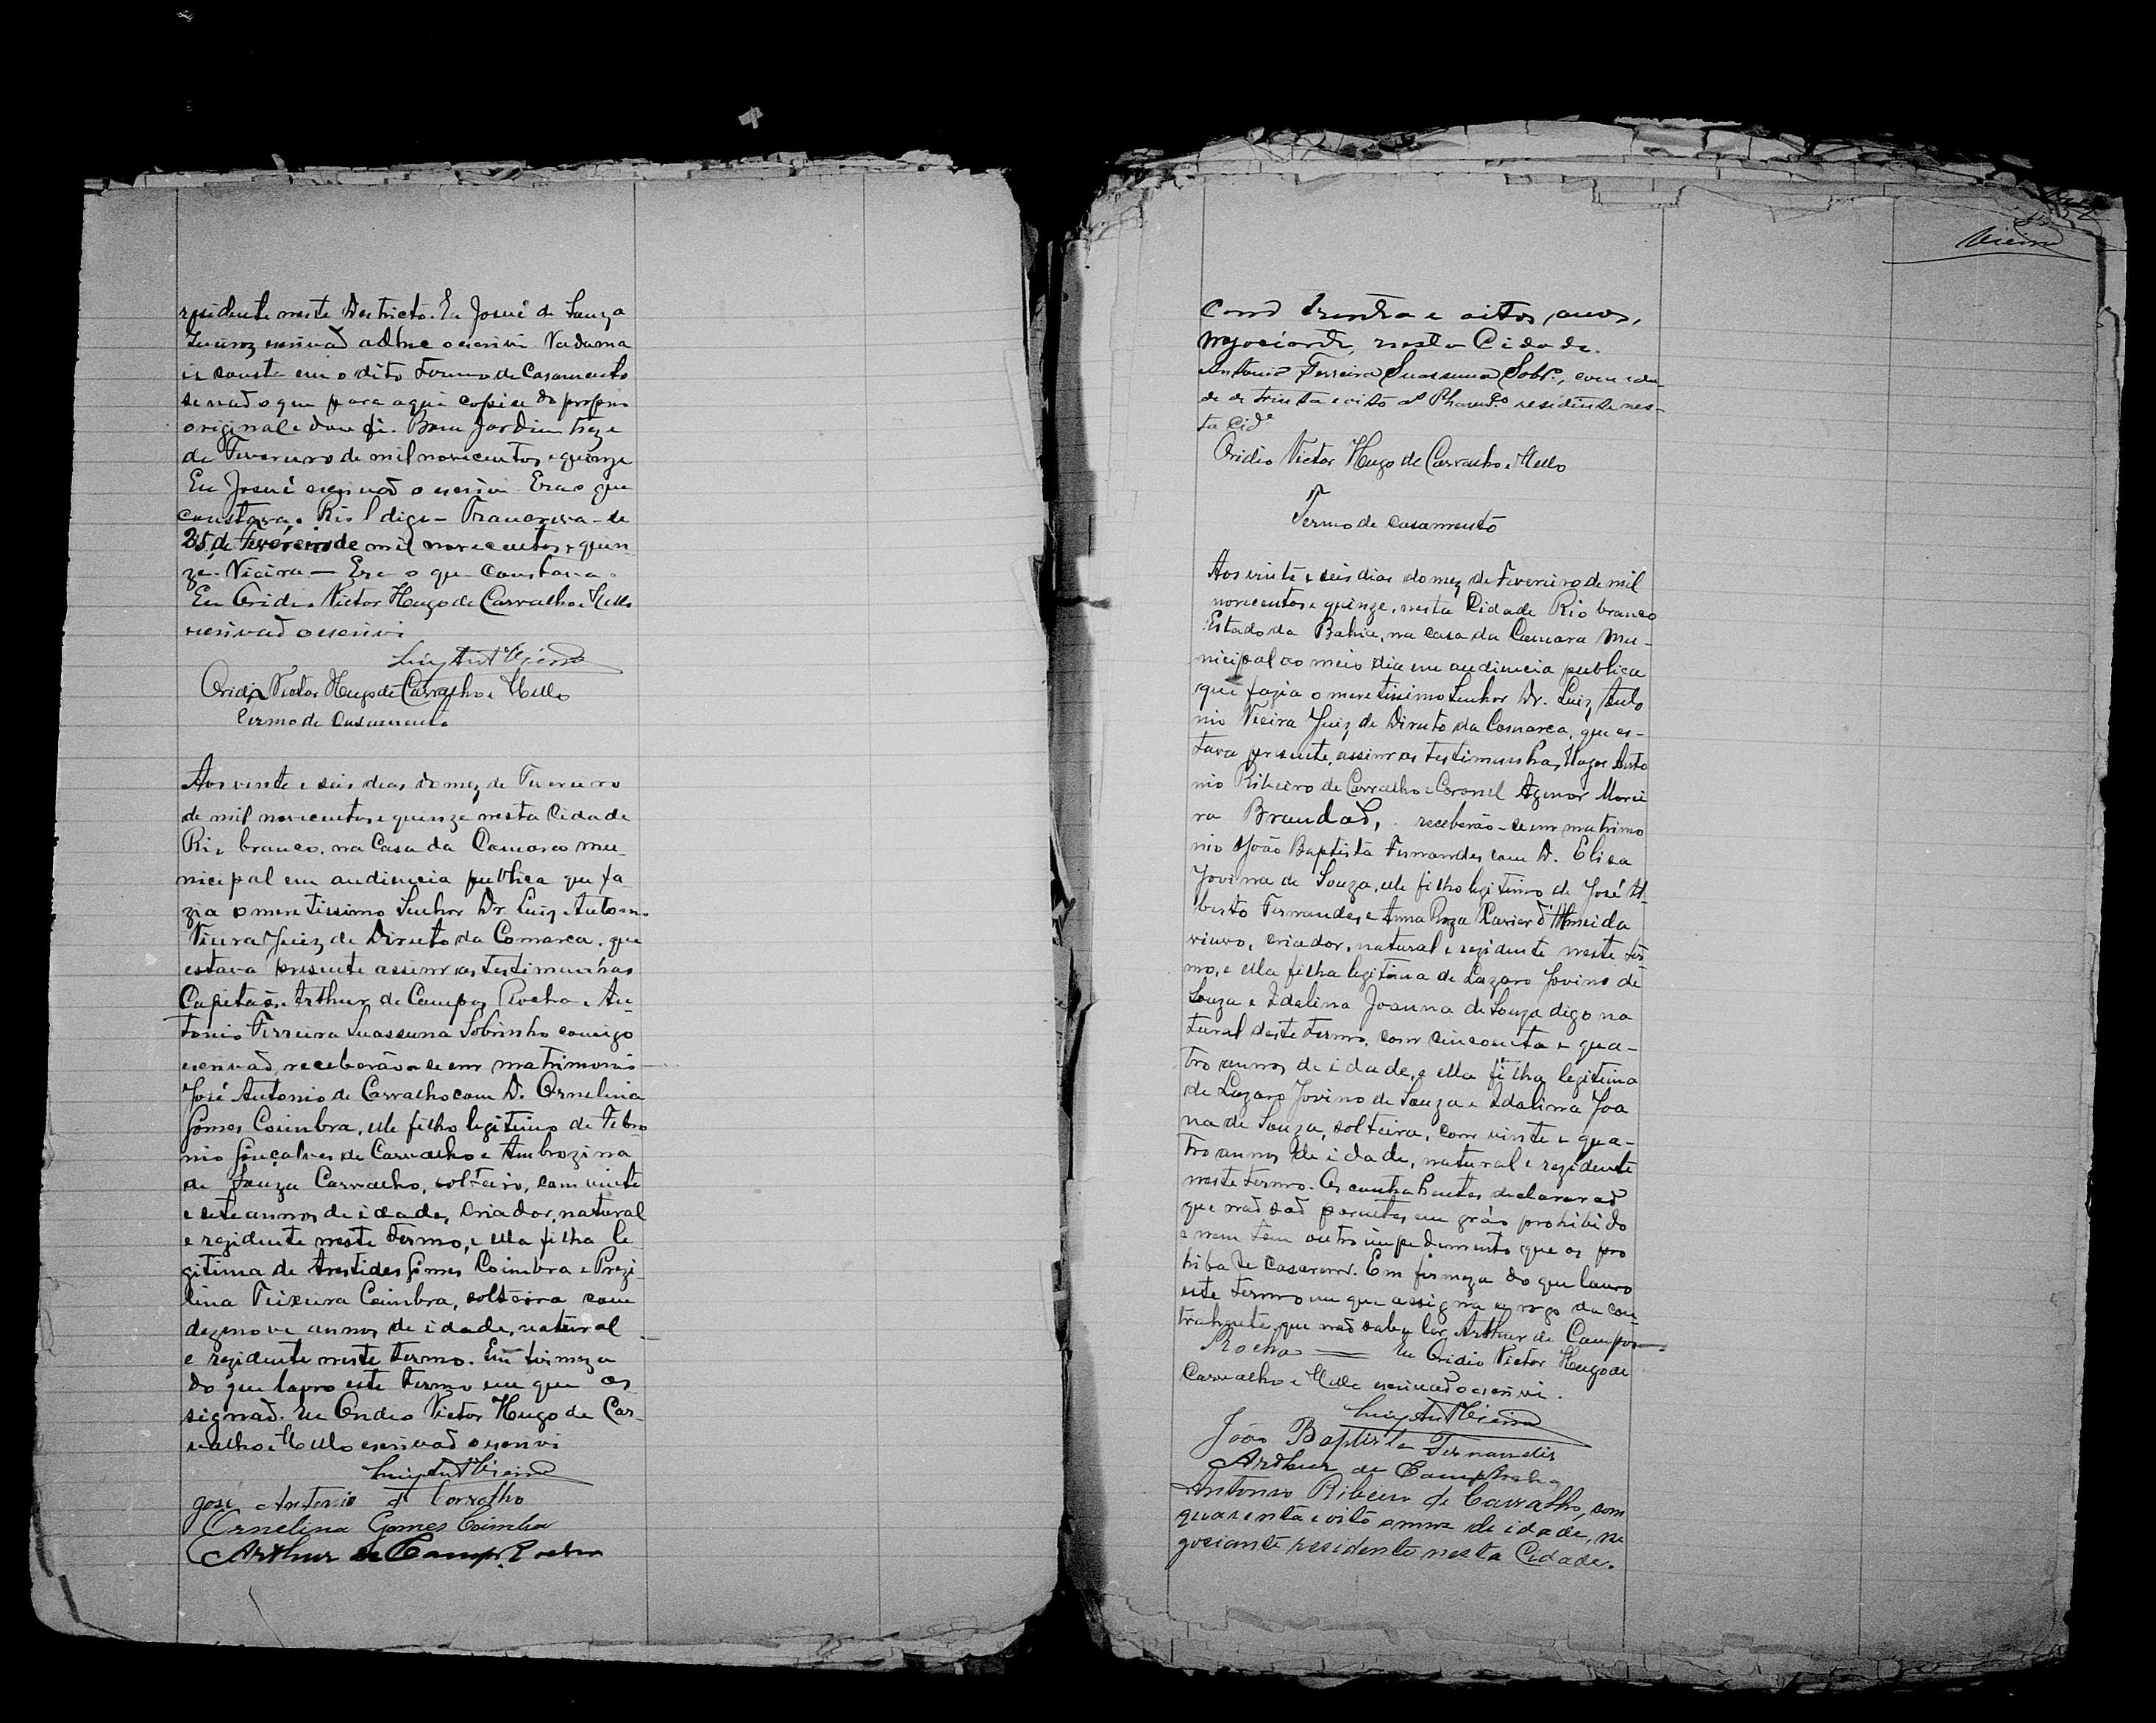 rezidente neste Destricto. Eu Josué de Souza
escrivaõ o escrivi. Nada ma
is consta em o dito Termo de Casamento
senaõ o que para aqui copiei do proprio
original e dou fé. Bom Jardim treze
de Fevereiro de mil novecentos e quinze
Eu Josué escrivaõ o escrivi. Era o que
constava. digo - Transcreva-se
25, de Fevereiro de mil novecentos e quin
ze. Vieira — Era o que constava.
Eu Ovidio Victor Hugo de Carvalho e Mello
escrivaõ o escrivi
Luiz Ant Vieira
Ovidio Victor Hugo de Carvalho e Mello
Termo de Casamento
Aos vinte e seis dias do mez de Fevereiro
de mil novecentos e quinze nesta Cidade
Rio branco, na Casa da Camara mu
nicipal em audiencia publica que fa
zia o meretissimo Senhor Dr. Luiz Antonio
Vieira Juiz de Direito da Comarca, que
estava presente assim as testimunhas
Capitaõ Arthur de Campos Rocha e An
tonio Ferreira Suassuna Sobrinho comigo
escrivaõ, receberão-se em matrimonio
José Antonio de Carvalho com D. Ornelina
Gomes Coimbra, elle filho legitimo de Febro
nio Gonçalves de Carvalho e Ambrozina
de Souza Carvalho, solteiro, com vinte
e sete annos de idade, criador, natural
e rezidente neste termo, e ella filha le
gitima de Arestides Gomes Coimbra e Prezi
lina Teixeira Coimbra, solteira com
dezenove annos de idade, natural
e rezidente neste termo. Em firmeza
do que lavro este termo em que as
signaõ. Eu Ovidio Victor Hugo de Car
valho e Mello escrivaõ o escrivi
Luiz Ant Vieira
José Antonio de Carvalho
Ornelina Gomes Coimbra
Arthur de Camp. Rocha
Vieira
Com trinta e oitos anos,
Negociante, nesta Cidade.
Antonio Ferreira Suassuna Sobr.º, com ida
de de trinta e oito a.s Pharm.co residente nes-
ta Cid.e
Ovidio Victor Hugo de Carvalho e Mello
Termo de casamento
Aos vinte e seis dias do mez de Fevereiro de mil
novecentos e quinze, nesta Cidade Rio branco
Estado da Bahia, na casa da Camara Mu-
nicipal ao meio dia em audiencia publica
que fazia o meretissimo Senhor Dr. Luiz Anto
nio Vieira Juiz de Direito da Comarca, que es-
tava presente, assim as testimunhas, Major Anto
nio Ribeiro de Carvalho e Coronel Agenor Morei
ra Brandaõ, receberão-se em matrimo
nio João Baptista Fernandes com D. Elisa
Jovina de Souza, elle filho legitimo de José Al
berto Fernandes e Anna Roza Xavier d'Almeida
viuvo, criador, natural e rezidente neste ter
mo, e ella filha legitima de Lazaro Jovino de
Souza e Idalina Joanna de Souza digo na
tural deste termo, com cincoenta e qua-
tro annos de idade, e ella filha legitima
de Lazaro Jovino de Souza e Idalina Joa
na de Souza, solteira, com vinte e qua-
tro annos de idade, natural e rezidente
neste termo. Os contrahentes declararaõ
que naõ saõ parentes em gráo prohibido
e nem tem outro impedimento que os pro
hiba de casarem. Em firmeza do que lavro
este termo em que assigna a rogo da con
trahente que naõ sabe ler, Arthur de Campos
Rocha — Eu Ovidio Victor Hugo de
Carvalho e Mello escrivaõ o escrivi.
Luiz Ant Vieira
João Baptista Fernandes
Arthur de Camp Rocha
Antonio Ribeiro de Carvalho, com
quarenta e oito annos de idade, ne
gosiante residente nesta Cidade.